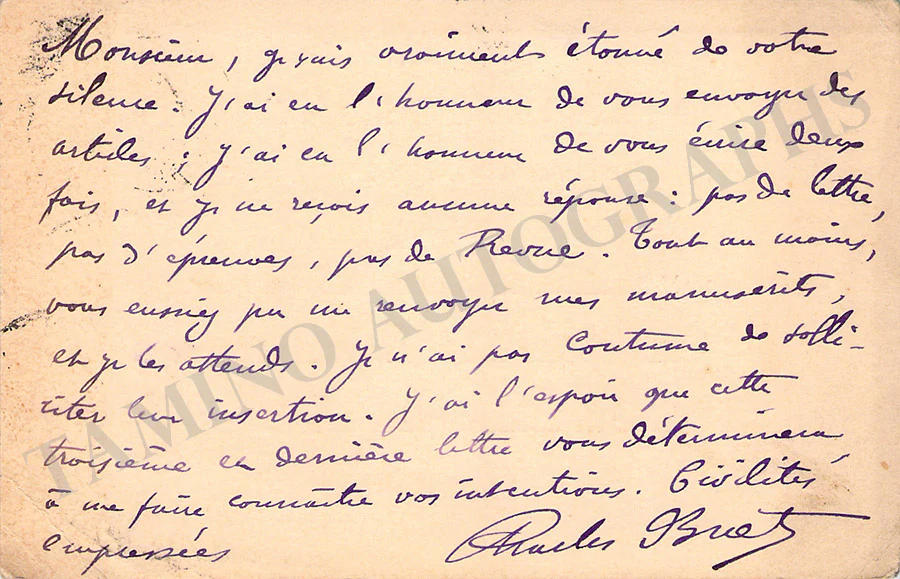 Monsieur, je suis vraiment étonné de votre
silence. J'ai eu l'honneur de vous envoyer des
articles ; j'ai eu l'honneur de vous écrire deux
fois, et je ne reçois aucune réponse : pas de lettre,
pas d'épreuves, pas de Revue. Tout au moins,
vous eussiez pu me renvoyer mes manuscrits,
et je les attends. Je n'ai pas coutume de solli-
citer leur insertion. J'ai l'espoir que cette
troisième et dernière lettre vous déterminera
à me faire connaître vos intentions. Civilités
empressées
Charles Buet
TAMINO AUTOGRAPHS